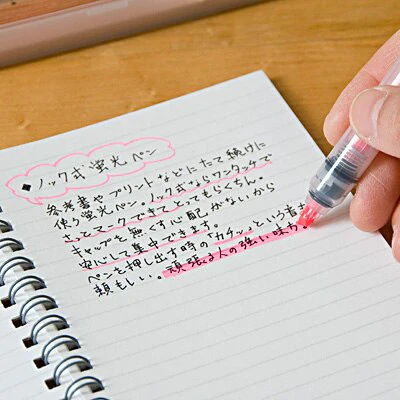 ◆ノック式蛍光ペン
参考書やプリントなどにたて続けに
使う蛍光ペン。ノック式ならワンタッチで
さっとマークできてとってもらくちん。
キャップを無くす心配がないから
安心して集中できます。
ペンを押し出す時の「カチッ」という音も
頼もしい。頑張る人の強い味方。